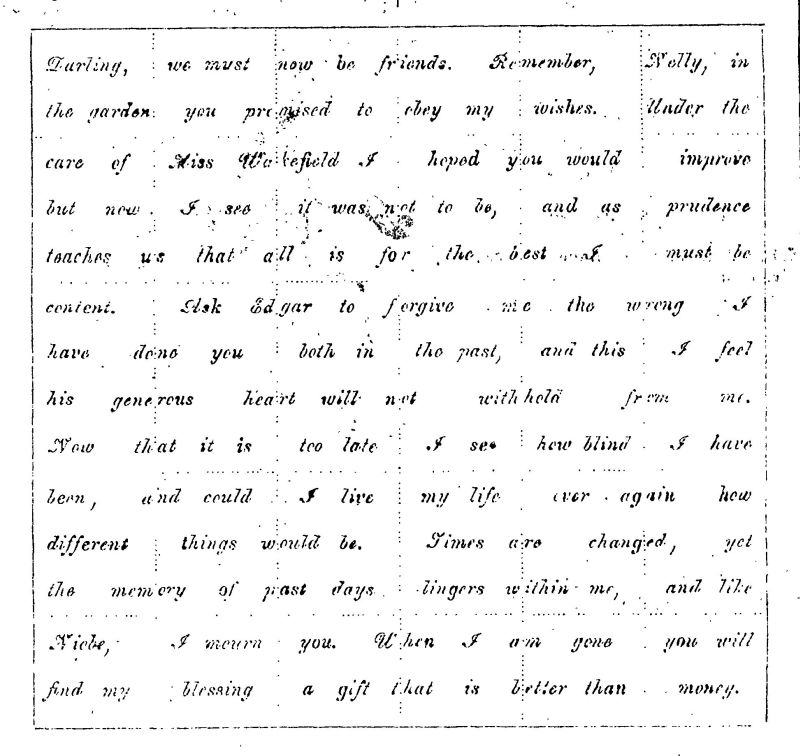 Darling, we must now be friends. Remember, Nelly, in
the garden you promised to obey my wishes. Under the
care of Miss Wakefield I hoped you would improve
but now I see it was not to be, and as prudence
teaches us that all is for the best I must be
content. Ask Edgar to forgive me the wrong I
have done you both in the past, and this I feel
his generous heart will not withhold from me.
Now that it is too late I see how blind I have
been, and could I live my life over again how
different things would be. Times are changed, yet
the memory of past days lingers within me, and like
Niobe, I mourn you. When I am gone you will
find my blessing a gift that is better than money.